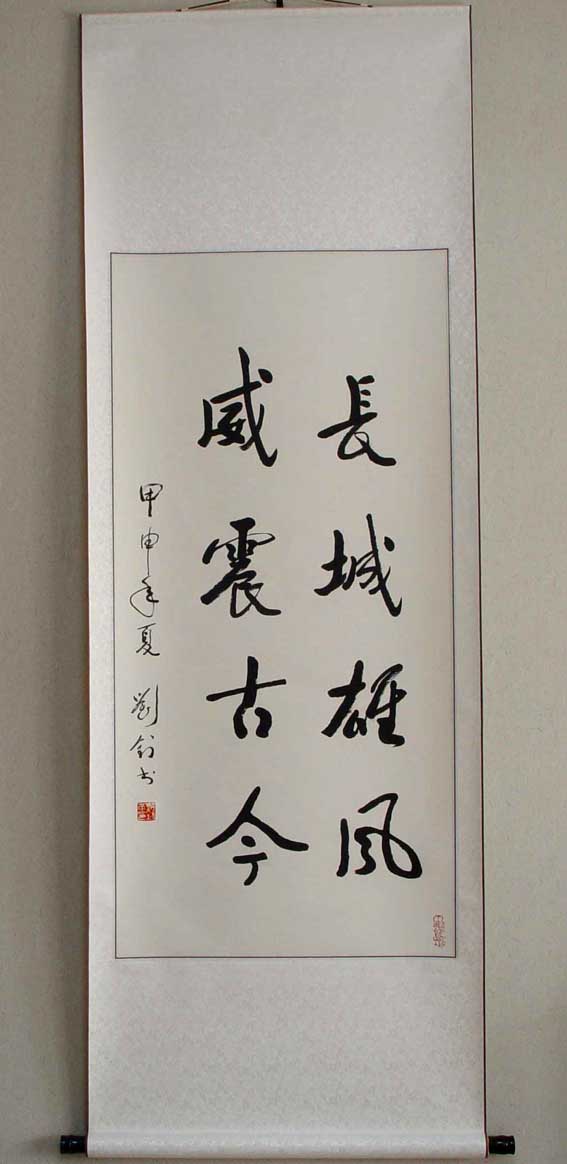 長城雄風
威震古今
甲申年夏 劉剑书